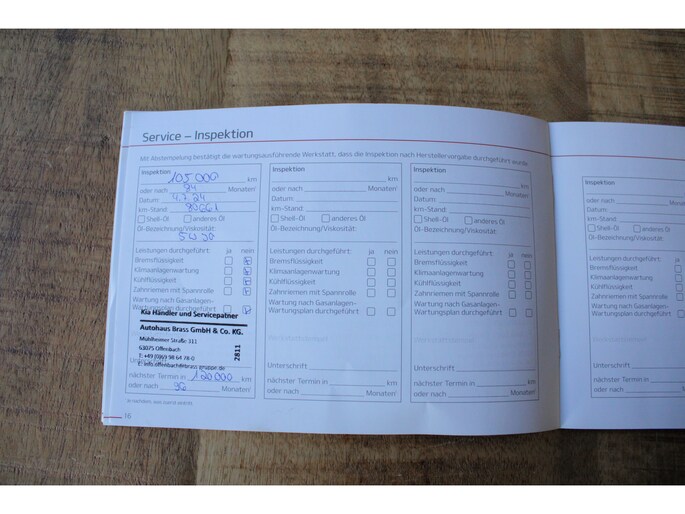 Service – Inspektion
Mit Abstempelung bestätigt die wartungsausführende Werkstatt, dass die Inspektion nach Herstellervorgabe durchgeführt wurde.
Inspektion
105 000 km
oder nach 84 Monaten
Datum:
km-Stand:
Shell-Öl anderes Öl
Öl-Bezeichnung/Viskosität:
5W30
Leistungen durchgeführt: ja nein
Bremsflüssigkeit
Klimaanlagenwartung
Kühlflüssigkeit
Zahnriemen mit Spannrolle
Wartung nach Gasanlagen-
Wartungsplan durchgeführt
Kia Händler und Servicepartner
Autohaus Brass GmbH & Co. KG.
Mühlheimer Straße 311
63075 Offenbach
T: +49 (0)69 98 64 78-0
E: info.offenbach@brass-gruppe.de
2811
nächster Termin in 120000 km
oder nach Monaten
16
Inspektion
km
oder nach Monaten
Datum:
km-Stand:
Shell-Öl anderes Öl
Öl-Bezeichnung/Viskosität:
Leistungen durchgeführt: ja nein
Bremsflüssigkeit
Klimaanlagenwartung
Kühlflüssigkeit
Zahnriemen mit Spannrolle
Wartung nach Gasanlagen-
Wartungsplan durchgeführt
Unterschrift
nächster Termin in km
oder nach Monaten
Inspektion
km
oder nach Monaten
Datum:
km-Stand:
Shell-Öl anderes Öl
Öl-Bezeichnung/Viskosität:
Leistungen durchgeführt: ja nein
Bremsflüssigkeit
Klimaanlagenwartung
Kühlflüssigkeit
Zahnriemen mit Spannrolle
Wartung nach Gasanlagen-
Wartungsplan durchgeführt
Unterschrift
nächster Termin in km
oder nach Monaten
Inspektion
oder nach
Datum:
km-Stand:
Shell-Öl
Öl-Bezeichnung/Viskosität:
Leistungen durchgeführt:
Bremsflüssigkeit
Klimaanlagenwartung
Kühlflüssigkeit
Zahnriemen mit Spannrolle
Wartung nach Gasanlagen-
Wartungsplan durchgeführt
Unterschrift
nächster Termin in
oder nach